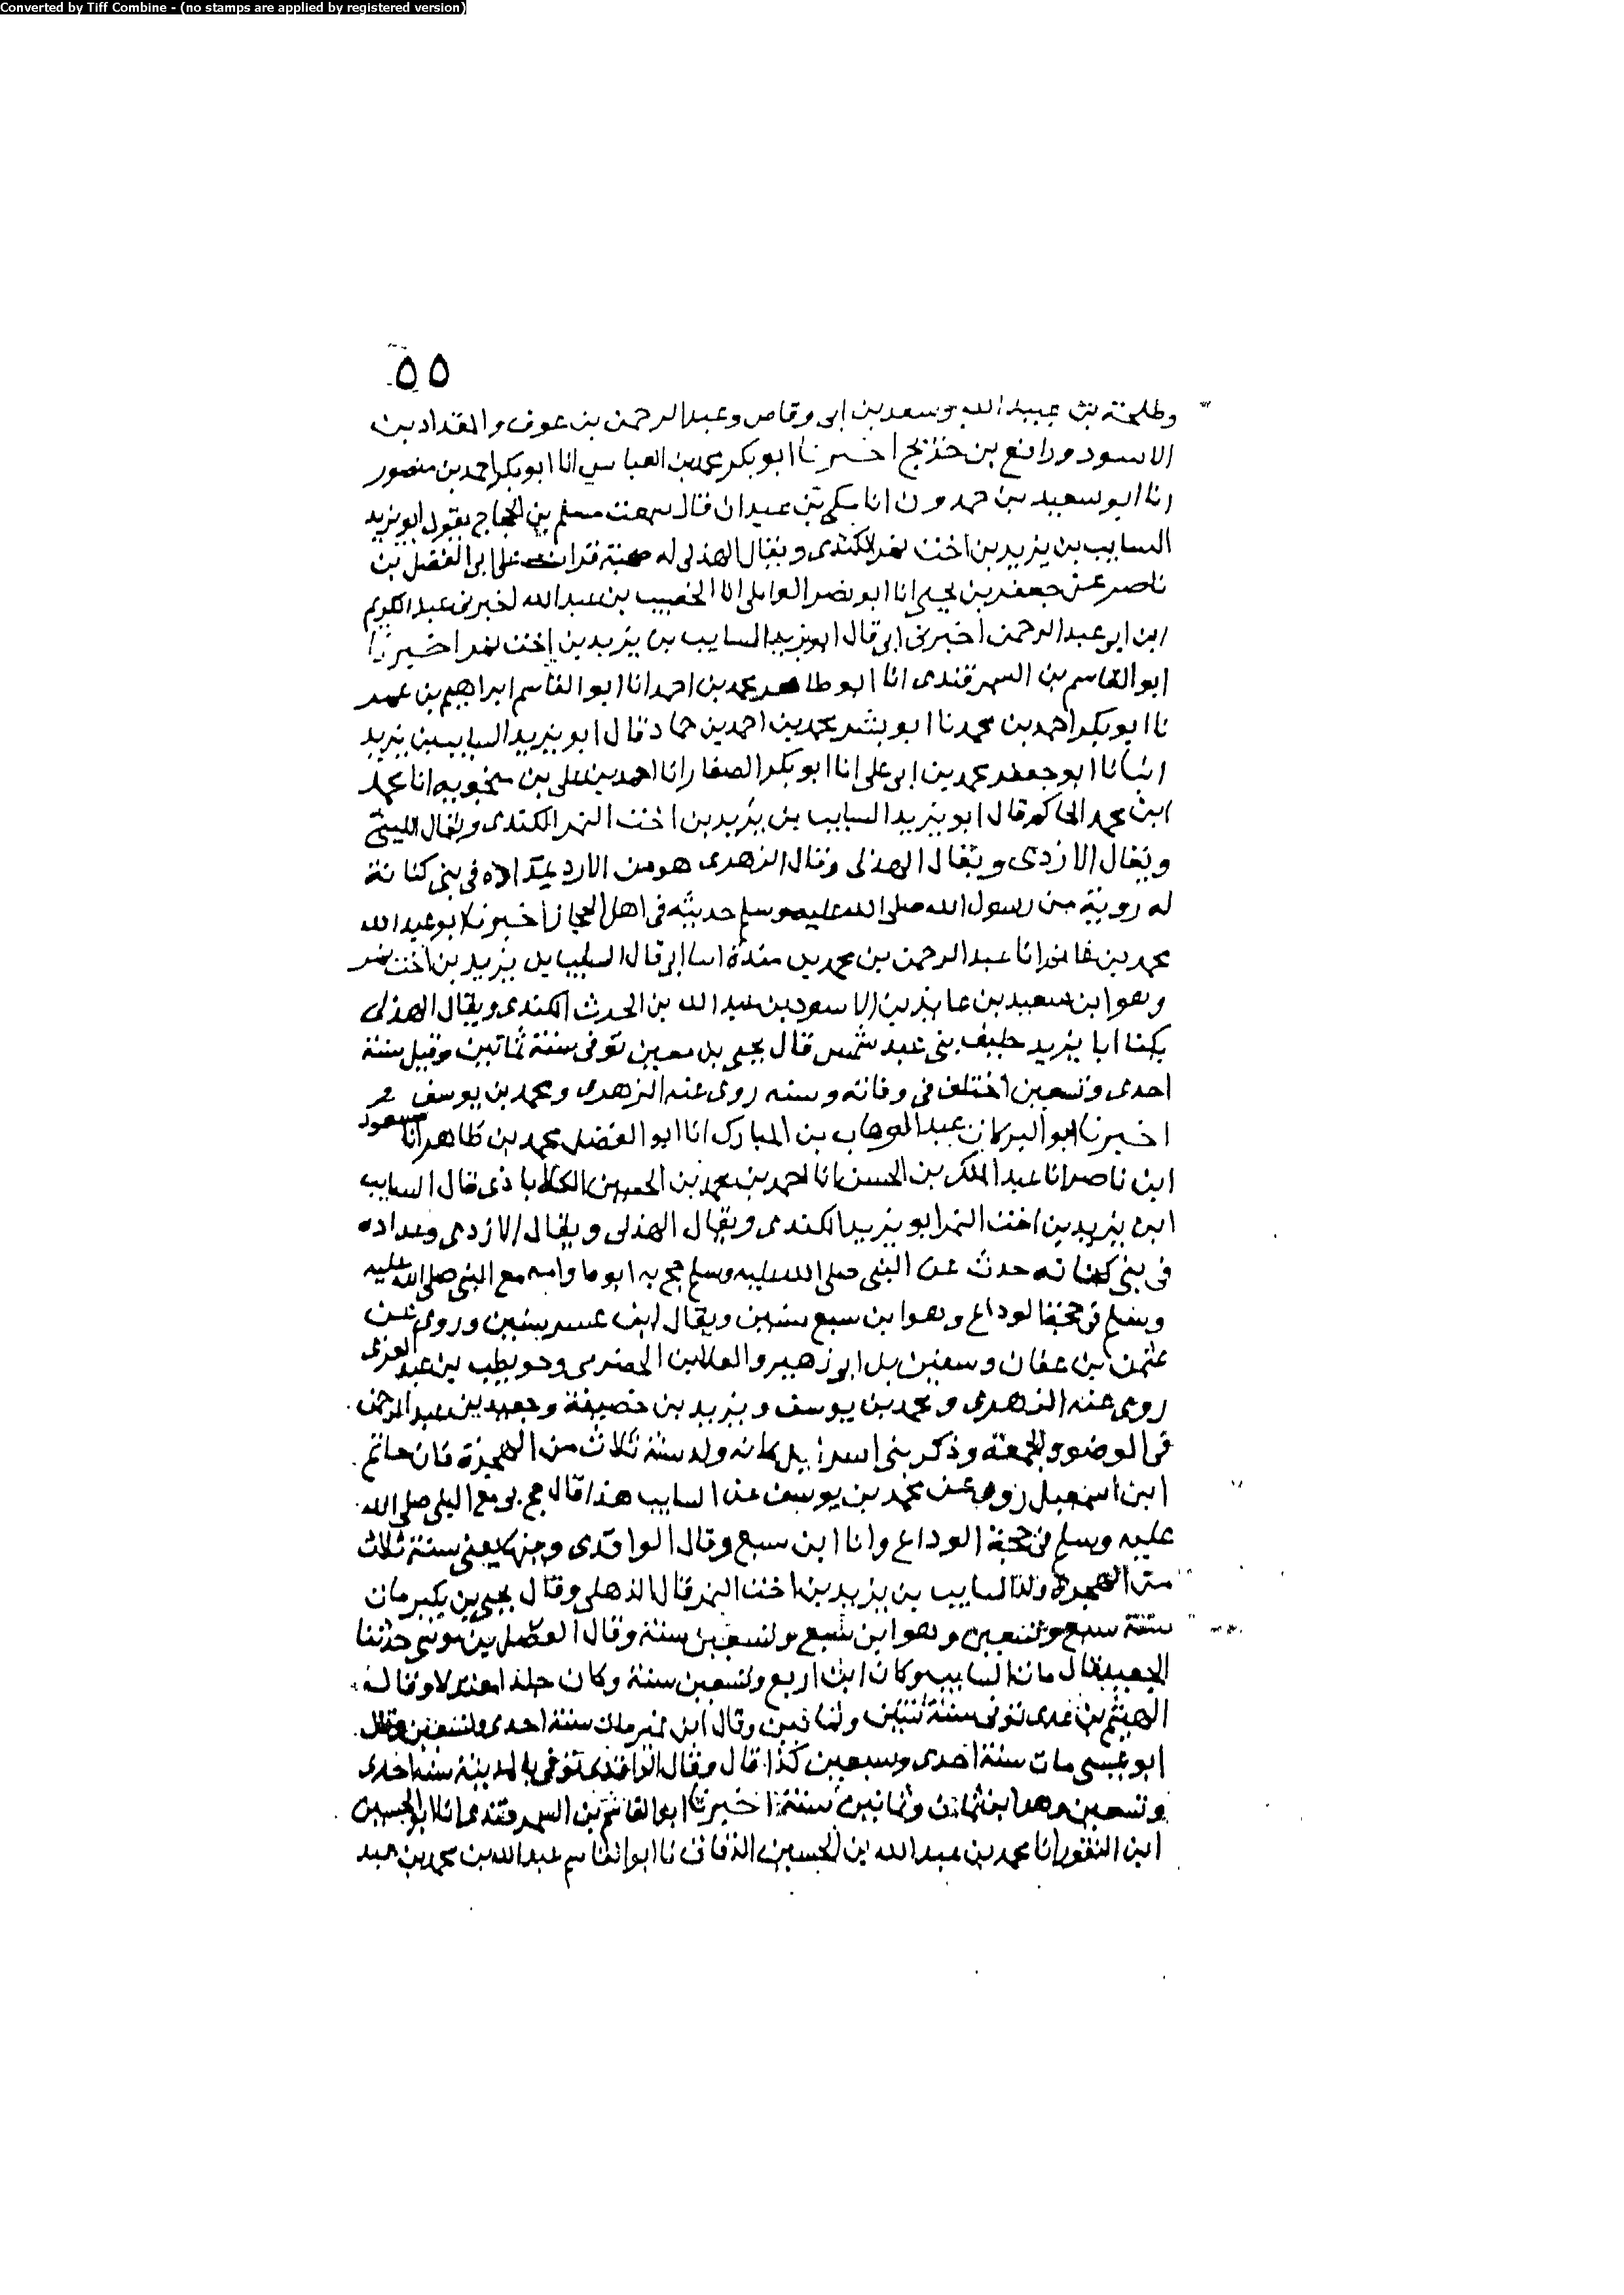 Converted by Tiff Combine - (no stamps are applied by registered version)
٥٥
وطلحة بن عبيد الله وسعد بن ابى وقاص وعبد الرحمن بن عوف والمقداد بن
الاسود ورافع بن خديج اخبرنا ابو بكر محمد بن العباس انا ابو بكر احمد بن منصور
انا ابو سعيد بن حمدون انا مكى بن عبدان قال سمعت مسلم بن الحجاج يقول ابو يزيد
السايب بن يزيد بن اخت نمر الكندى ويقال الهذلى له صحبة قرات على ابى الفضل بن
ناصر عن جعفر بن يحيى انا ابو نصر الوايلى انا الخصيب بن عبد الله اخبرنى عبد الكريم
ابن ابى عبد الرحمن اخبرنى ابى قال ابو يزيد السايب بن يزيد بن اخت نمر اخبرنا
ابو القاسم بن السمرقندى انا ابو طاهر محمد بن احمد انا ابو القاسم ابراهيم بن عمر
نا ابو بكر احمد بن محمد نا ابو بشر محمد بن احمد بن حماد قال ابو يزيد السايب بن يزيد
انبانا ابو جعفر محمد بن ابى على انا ابو بكر الصفار انا احمد بن على بن منجويه انا محمد
ابن محمد الحاكم قال ابو يزيد السايب بن يزيد بن اخت النمر الكندى ويقال الليثى
ويقال الازدى ويقال الهذلى وقال الزهرى هو من الازد عداده فى بنى كنانة
له روية من رسول الله صلى الله عليه وسلم حديثه فى اهل الحجاز اخبرنا ابو عبد الله
محمد بن غانم انا عبد الرحمن بن محمد بن مندة انا ابى قال السايب بن يزيد بن اخت نمر
وهو ابن سعيد بن عايذ بن الاسود بن عبد الله بن الحرث الكندى ويقال الهذلى
يكنا ابا يزيد حليف بنى عبد شمس قال يحيى بن معين توفى سنة ثمانين وقيل سنة
احدى وتسعين اختلف فى وفاته وسنه روى عنه الزهرى ومحمد بن يوسف
اخبرنا ابو البركات عبد الوهاب بن المبارك انا ابو الفضل محمد بن طاهر انا مسعود
ابن ناصر انا عبد الملك بن الحسن انا احمد بن محمد بن الحسين الكلاباذى قال السايب
ابن يزيد بن اخت النمر ابو يزيد الكندى ويقال الهذلى ويقال الازدى وعداده
فى بنى كنانه حدث عن النبى صلى الله عليه وسلم حج به ابوه وامه مع النبى صلى الله عليه
وسلم فى حجة الوداع وهو ابن سبع سنين ويقال ابن عشر سنين وروى عن
عثمن بن عفان وسفين بن ابى زهير والعلا بن الحضرمى وحويطب بن عبد العزى
روى عنه الزهرى ومحمد بن يوسف ويزيد بن خصيفة وجعيد بن عبد الرحمن
فى الوضوء والجمعة وذكر بنى اسرايل كانه ولد سنة ثلاث من الهجرة فان حاتم
ابن اسمعيل روى عن محمد بن يوسف عن السايب هذا قال حج بى مع النبى صلى الله
عليه وسلم فى حجة الوداع وانا ابن سبع وقال الواقدى وفيها يعنى سنة ثلاث
من الهجرة ولد السايب بن يزيد بن اخت النمر قال الذهلى وقال يحيى بن بكير مات
سنة سبع وتسعين وهو ابن سبع وتسعين سنة وقال الفضل بن موسى حدثنا
الجعيد قال مات السايب وكان ابن اربع وتسعين سنة وكان جلدا معتدلا وقال
الهيثم بن عدى توفى سنة اثنتين وثمانين وقال ابن نمير مات سنة احدى وتسعين وقال
ابو عيسى مات سنة احدى وسبعين كذا قال وقال الواقدى توفى بالمدينة سنة احدى
وتسعين وهو ابن ثمان وثمانين سنة اخبرنا ابو القاسم بن السمرقندى انا ابو الحسين
ابن النقور انا محمد بن عبد الله بن الحسين الدقاق نا ابو القاسم عبد الله بن محمد بن عبد